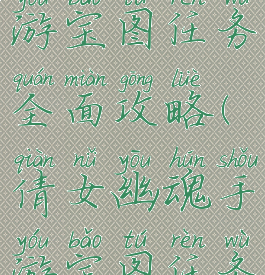 yóu bǎo tú rèn wù
游宝图任务
quán miàn gōng lüè
全面攻略(
qiàn nǚ yōu hún shǒu
倩女幽魂手
yóu bǎo tú rèn wù
游宝图任务